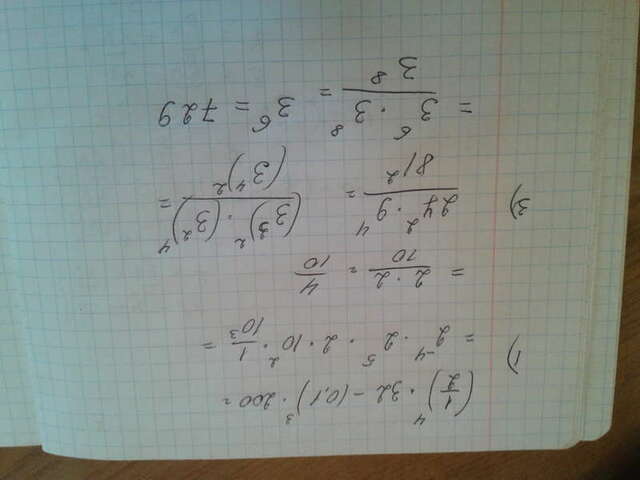 1) (1/2)⁴ · 32 - (0,1)³ · 200 =
= 2⁻⁴ · 2⁵ · 2 · 10² · 1/10³ =
= 2 · 2/10 = 4/10
3) 27² · 9⁴/81² = (3³)² · (3²)⁴/(3⁴)² =
= 3⁶ · 3⁸/3⁸ = 3⁶ = 729